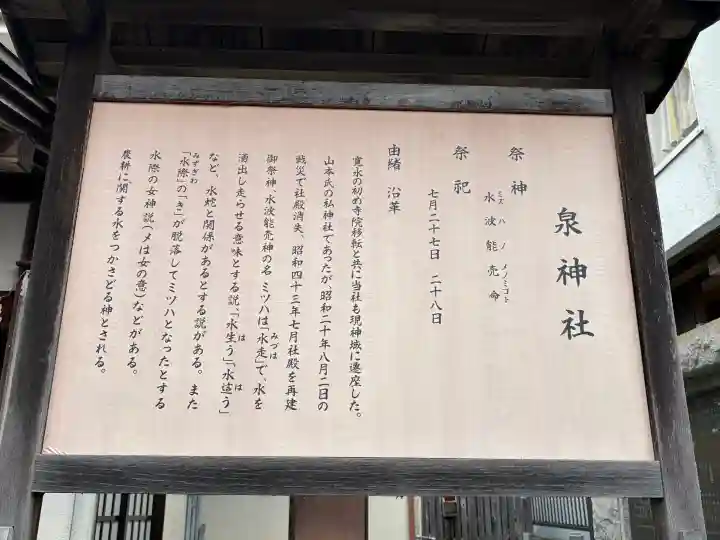 泉神社
祭神
ミズ ハ ノ メノミコト
水波能売命
祭祀
七月二十七日 二十八日
由緒 沿革
寛永の初め寺院移転と共に当社も現神域に遷座した。
山本氏の私神社であったが、昭和二十年八月二日の
戦災で社殿消失、昭和四十三年七月社殿を再建
御祭神、水波能売神の名 ミツハは「水走」で、水を
みづは
湧出し走らせる意味とする説「水生う」「水這う」
は は
など、水蛇と関係があるとする説がある。 また
「水際」の「き」が脱落してミツハとなったとする
みずぎわ
水際の女神説(メは女の意)などがある。
農耕に関する水をつかさどる神とされる。